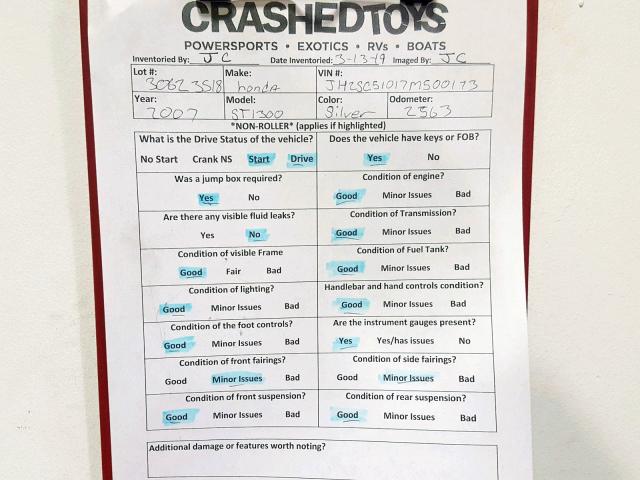 CRASHEDTOYS
POWERSPORTS • EXOTICS • RVs • BOATS
Inventoried By: JC Date Inventoried: 3-13-19 Imaged By: JC
Lot #: Make: VIN #:
30623518 honda JH2SC51017M500173
Year: Model: Color: Odometer:
2007 ST1300 Silver 2563
*NON-ROLLER* (applies if highlighted)
What is the Drive Status of the vehicle? Does the vehicle have keys or FOB?
No Start Crank NS Start Drive Yes No
Was a jump box required? Condition of engine?
Yes No Good Minor Issues Bad
Are there any visible fluid leaks? Condition of Transmission?
Yes No Good Minor Issues Bad
Condition of visible Frame Condition of Fuel Tank?
Good Fair Bad Good Minor Issues Bad
Condition of lighting? Handlebar and hand controls condition?
Good Minor Issues Bad Good Minor Issues Bad
Condition of the foot controls? Are the instrument gauges present?
Good Minor Issues Bad Yes Yes/has issues No
Condition of front fairings? Condition of side fairings?
Good Minor Issues Bad Good Minor Issues Bad
Condition of front suspension? Condition of rear suspension?
Good Minor Issues Bad Good Minor Issues Bad
Additional damage or features worth noting?